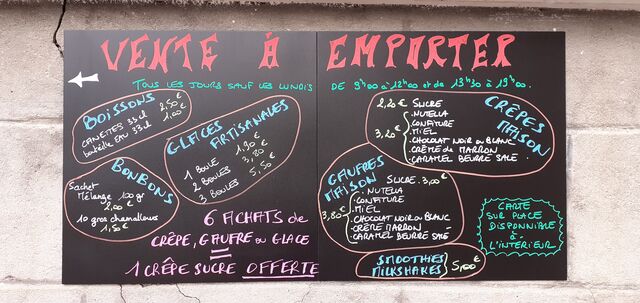 VENTE À EMPORTER
TOUS LES JOURS SAUF LES LUNDIS DE 9H00 A 12H00 et de 13H30 à 19H00.
BOISSONS
CANETTES 33cl 2,50€
bouteille EAU 33cl 1,00€
GLACES ARTISANALES
1 BOULE 1,90€
2 BOULES 3,80€
3 BOULES 5,50€
BONBONS
Sachet
Mélange 100gr
2,00€
10 gros chamallows
1,50€
6 ACHATS de
CRÊPE, GAUFRE ou GLACE
=
1 CRÊPE SUCRE OFFERTE
CRÊPES
MAISON
2,20€ SUCRE
3,20€
. NUTELLA
. CONFITURE
. MIEL
. CHOCOLAT NOIR OU BLANC
. CRÈME de MARRON
. CARAMEL BEURRE SALÉ
GAUFRES
MAISON
SUCRE 3,00€
3,80€
. NUTELLA
. CONFITURE
. MIEL
. CHOCOLAT NOIR ou BLANC
. CRÈME MARRON
. CARAMEL BEURRE SALÉ
SMOOTHIES
MILKSHAKES
5,00€
CARTE
SUR PLACE
DISPONIBLE
à
L'INTERIEUR